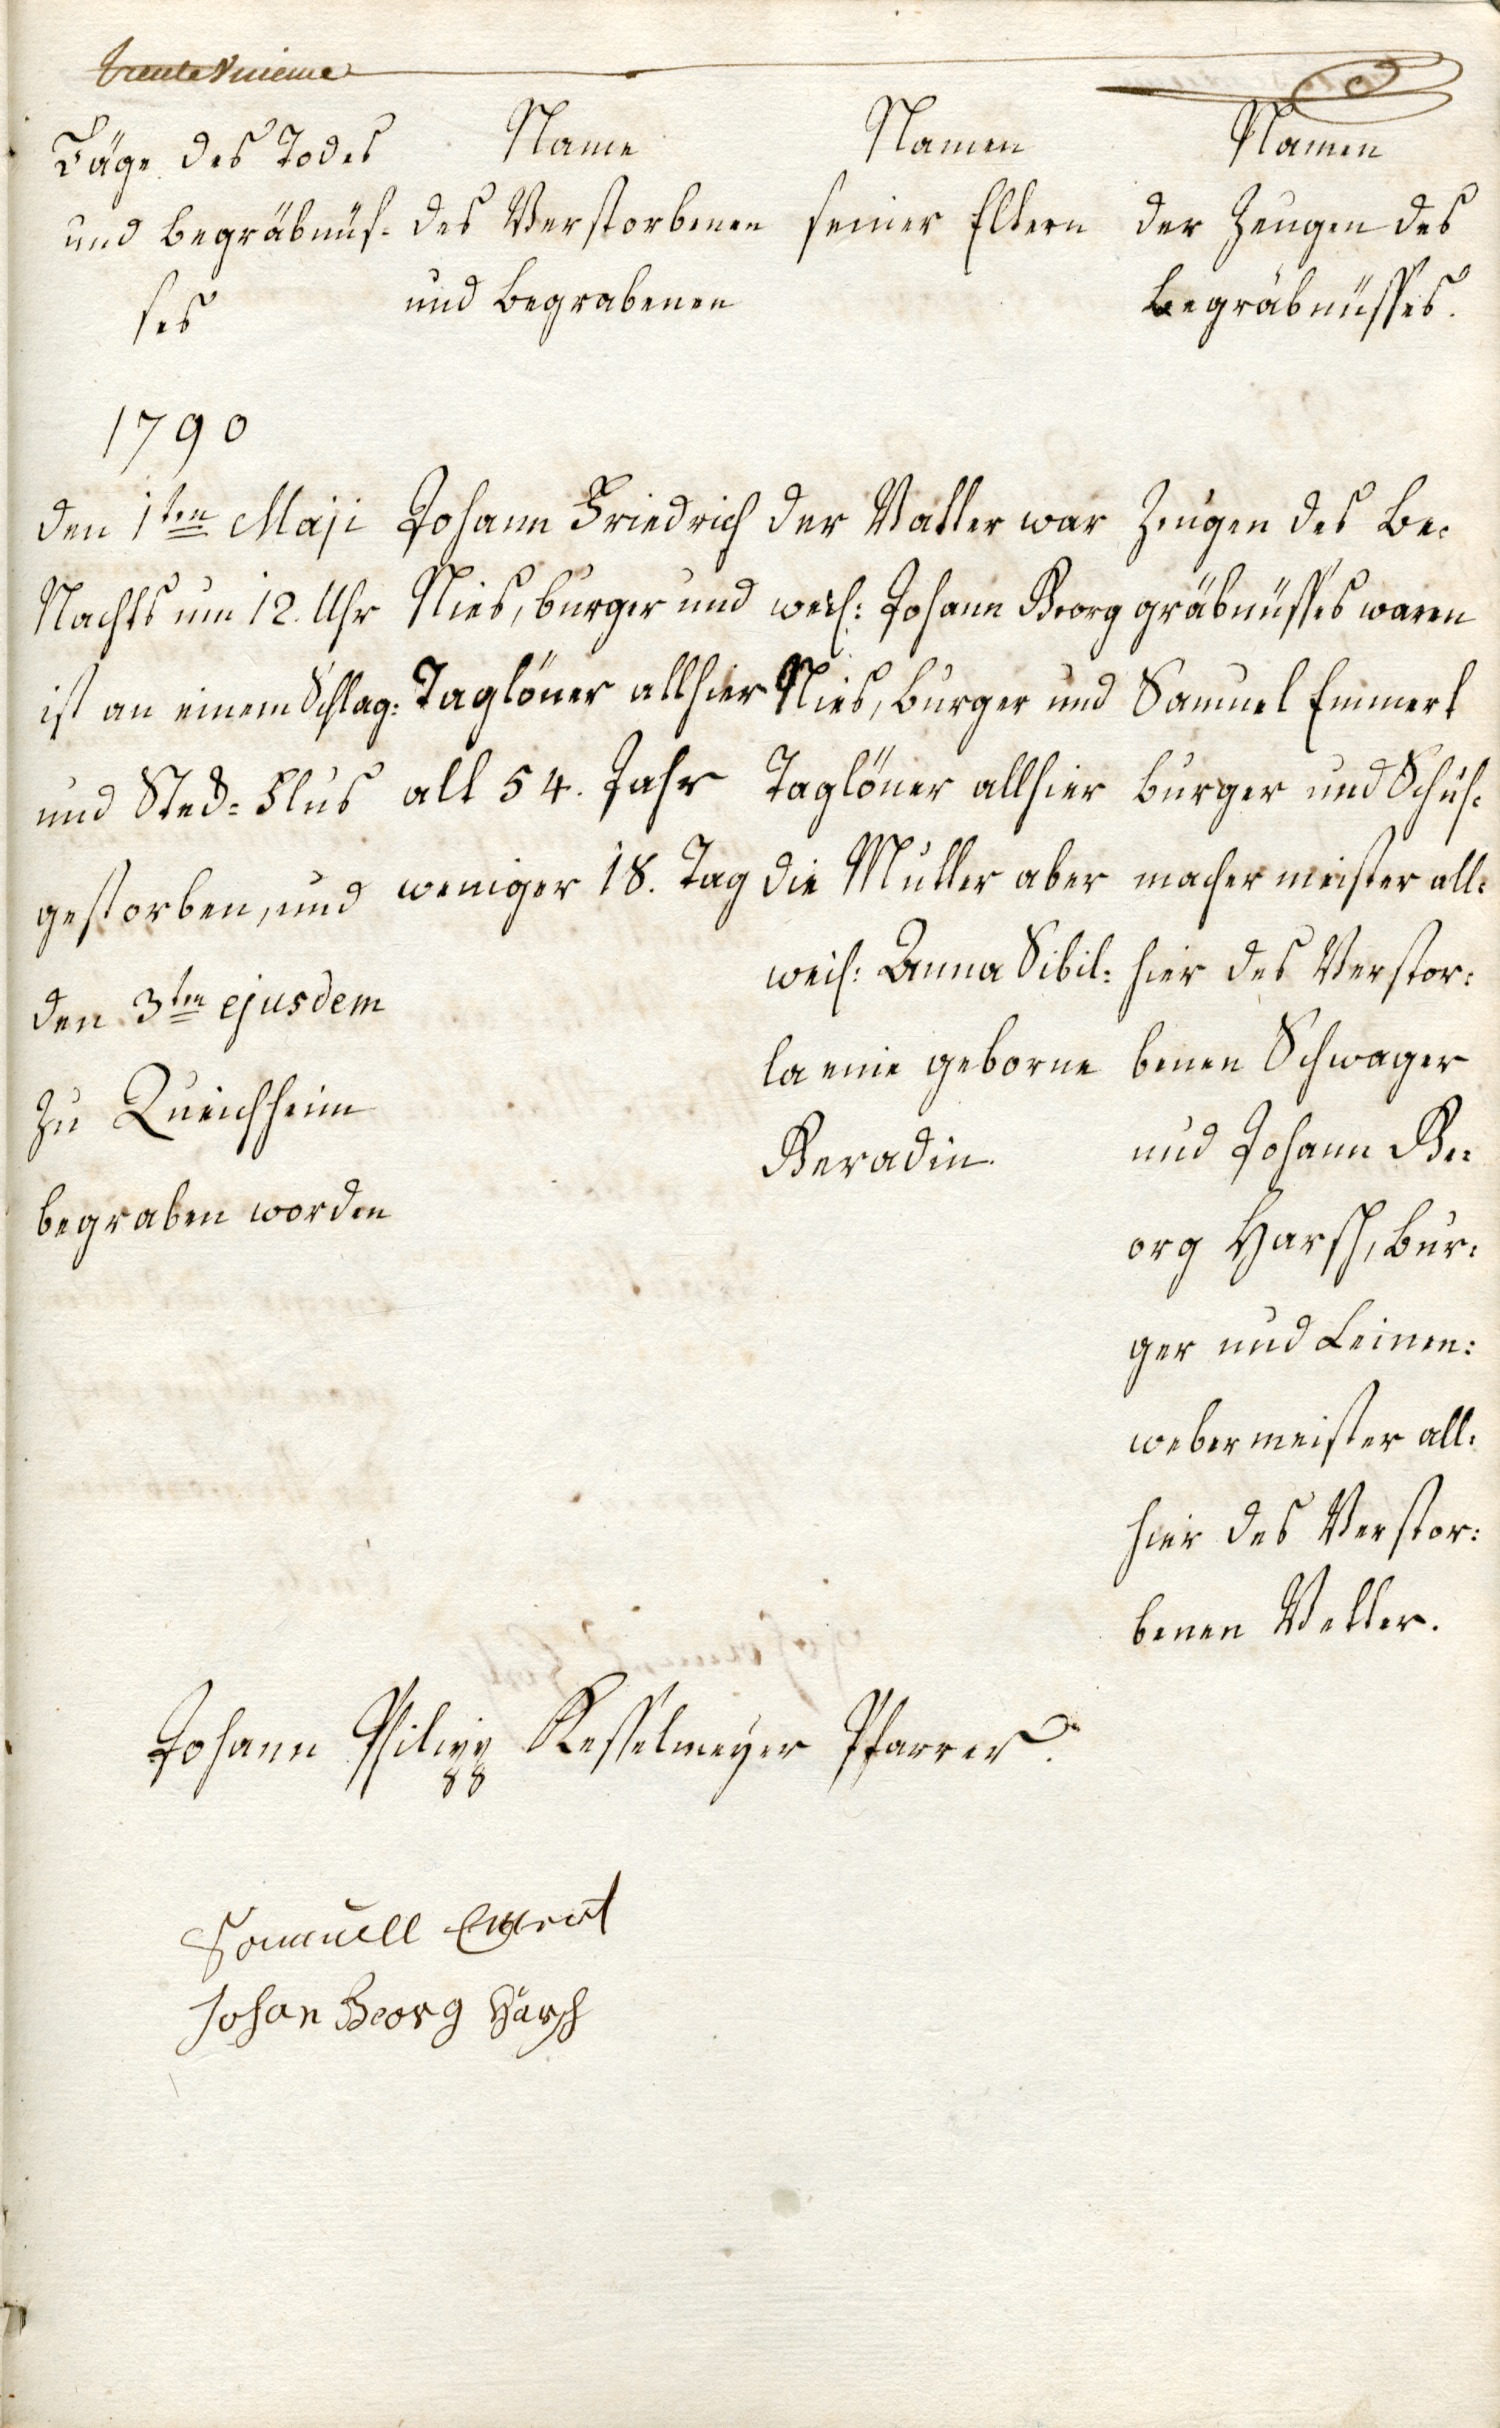 trente Unieme
Täge des Todes
und begräbnüs-
ses
Name
des Verstorbenen
und begrabenen
Namen
seiner Eltern
Namen
der Zeugen des
begräbnüsses.
1790
den 1ten Maji
Nachts um 12. Uhr
ist an einem Schlag:
und Sted: Flus
gestorben, und
den 3ten ejusdem
zu Queichheim
begraben worden
Johann Friedrich
Nies, burger und
Taglöner allhier
alt 54. Jahr
weniger 18. Tag
der Vatter war
weil: Johann Georg
Nies, burger und
Taglöner allhier
die Mutter aber
weil: Anna Sibil:
la eine geborne
Geradin.
Zeugen des Be:
gräbnüsses waren
Samuel Emmert
burger und Schuh:
macher meister all:
hier des Verstor:
benen Schwager
und Johann Ge:
org Harsch, bur:
ger und Leinen:
weber meister all:
hier des Verstor:
benen Vetter.
Johann Philipp Kesselmeyer Pfarrer.
Samuell Emert
Johan Georg Harsch